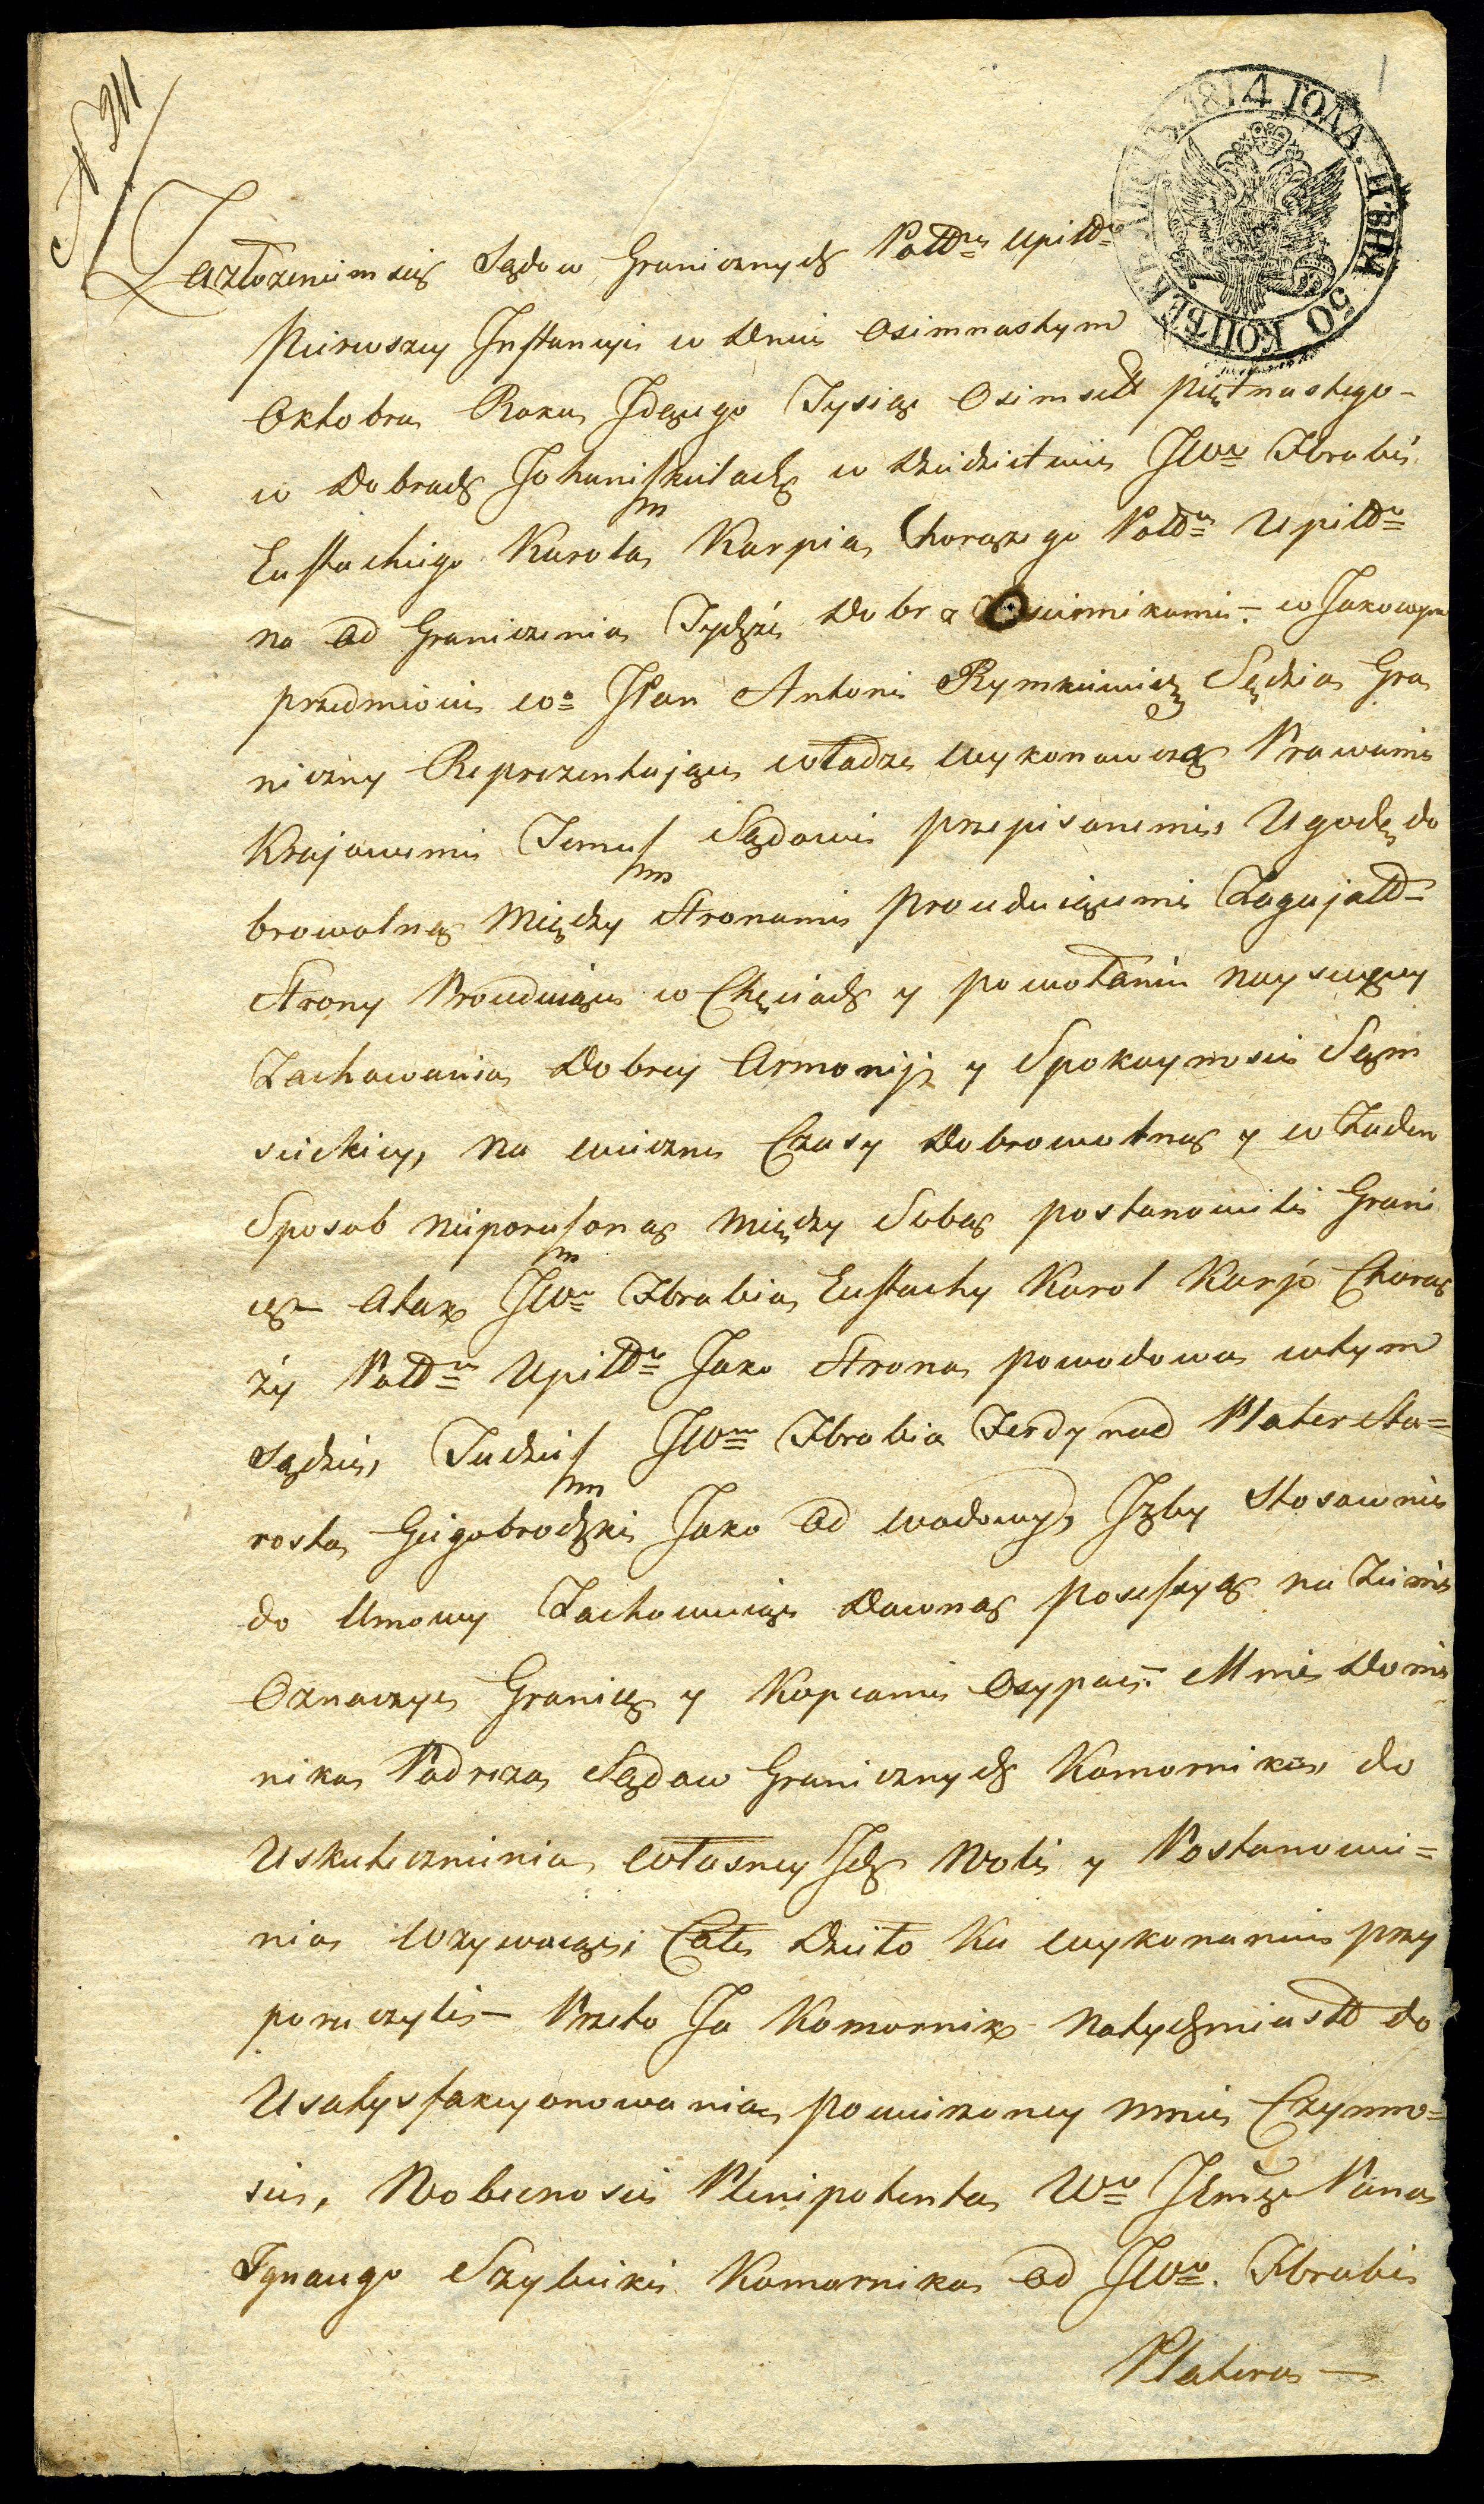 N 211
1
1814 ГОДА. ЦѢНА 50 КОПѢЕКЪ
Zazłożeniem się Sądow Granicznych Pottu Upittu
Pierwszey Instancyi w Dniu Osimnastym
Oktobra Roku Idącego Tysiąc Osimset Piętnastego -
w Dobrach Johaniszkielach w Dziedzictwie JWo Hrabi
Eustachiego Karola Karpia Chorążego Pottu Upittu
na od Graniczenia Tychże Dobr z w Jakowym
przedmiocie Wo JPan Antoni Rymkiewicz Sędzia Gra
niczny Reprezentując władze wykonawczą Prawami
Krajowemi Temuż Sądowi przepisanemi, Ugodę do
browolną między Stronami Prouducącemi Zagajałł
Strony Prouducące w Chęciach y powołaniu nayscięzey
Zachowania Dobrey Armonij y Spokoynosci Sąm
siedzkiey, na wieczne Czasy Dobrowolną y w Żaden
Sposob nieporuszoną między Sobą postanowili Grani
cę - Atak JWo Hrabia Eustachy Karol Karp Chorą
ży Pottu Upittu Jako Strona powodowa wtym
Sądzie, Tudziesz JWo Hrabia Ferdynad Plater Sta=
rosta Jako od wodowy, Iżby Stosownie
do Umowy Zachowuiąc Dawną Posessyą na Ziemi
Oznaczyc Granicę y Kopcami Osypac - Mnie Domi
nika Sądow Granicznych Komornika do
Uskutecznienia własney Ich Woli y Postanowie=
nia wzywaiąc, Całe Dzieło Ku wykonaniu przy
poruczyli - Przeto Ja Komornik Natychmiast do
Usatysfakcyonowania Powierzoney mnie Czynno=
sci, Wobecnosci Plenipotenta Wo Jmci Pana
Ignacego Komornika od JWo Hrabi
Platera —